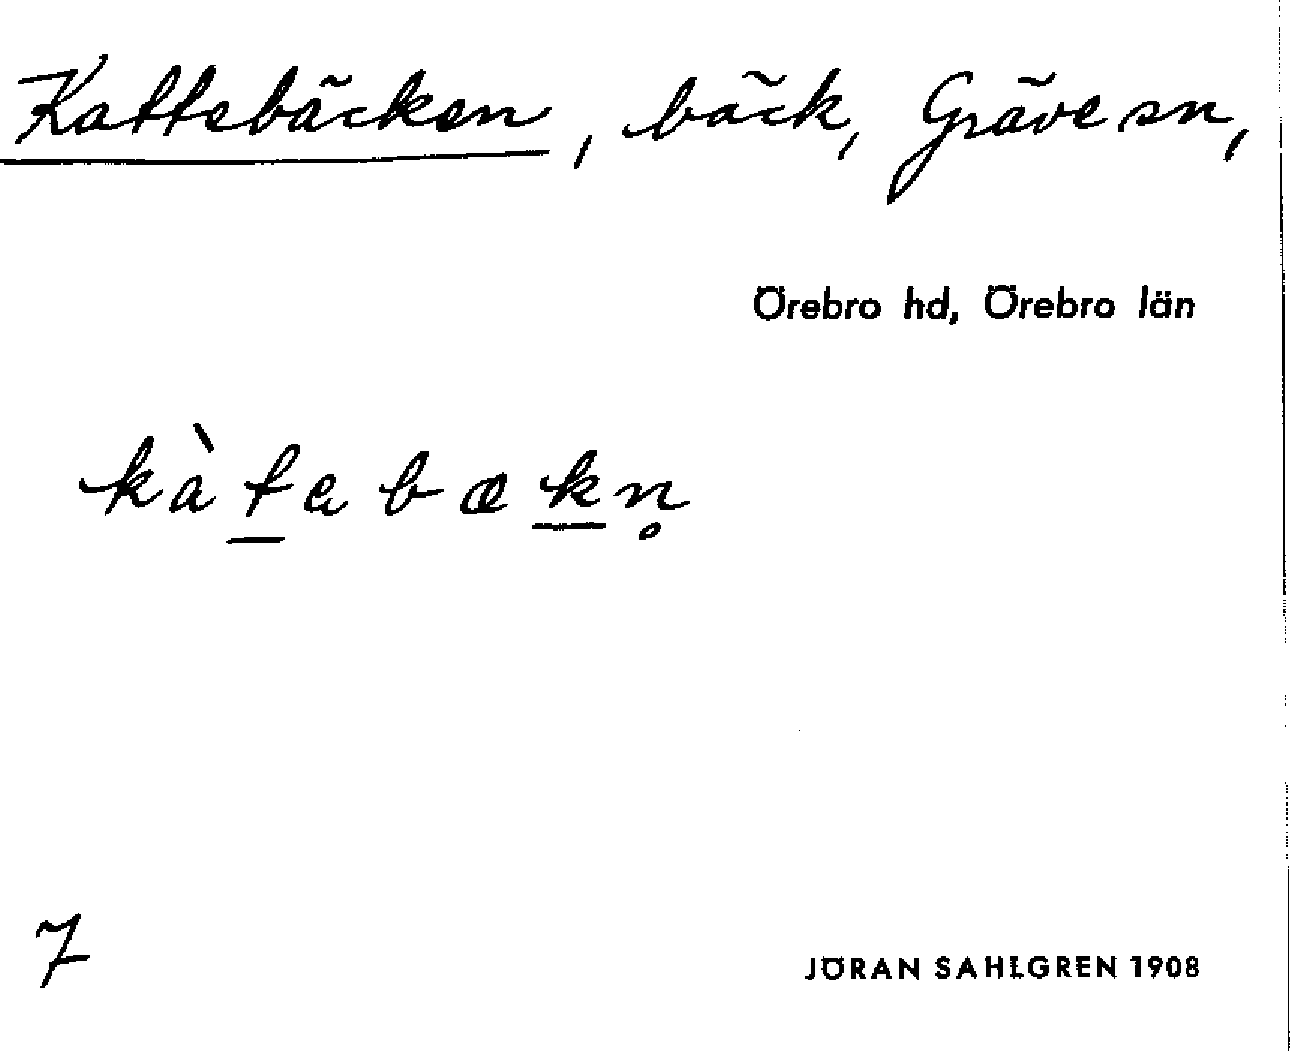 Kattebäcken, bäck, Gräve sn,
Örebro hd, Örebro län
kàt̲ebæk̲n̥
7
JÖRAN SAHLGREN 1908